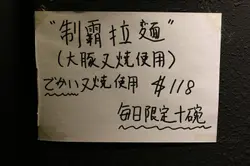 "制霸拉麵"
(大豚叉燒使用)
でかい叉燒使用 $118
每日限定十碗